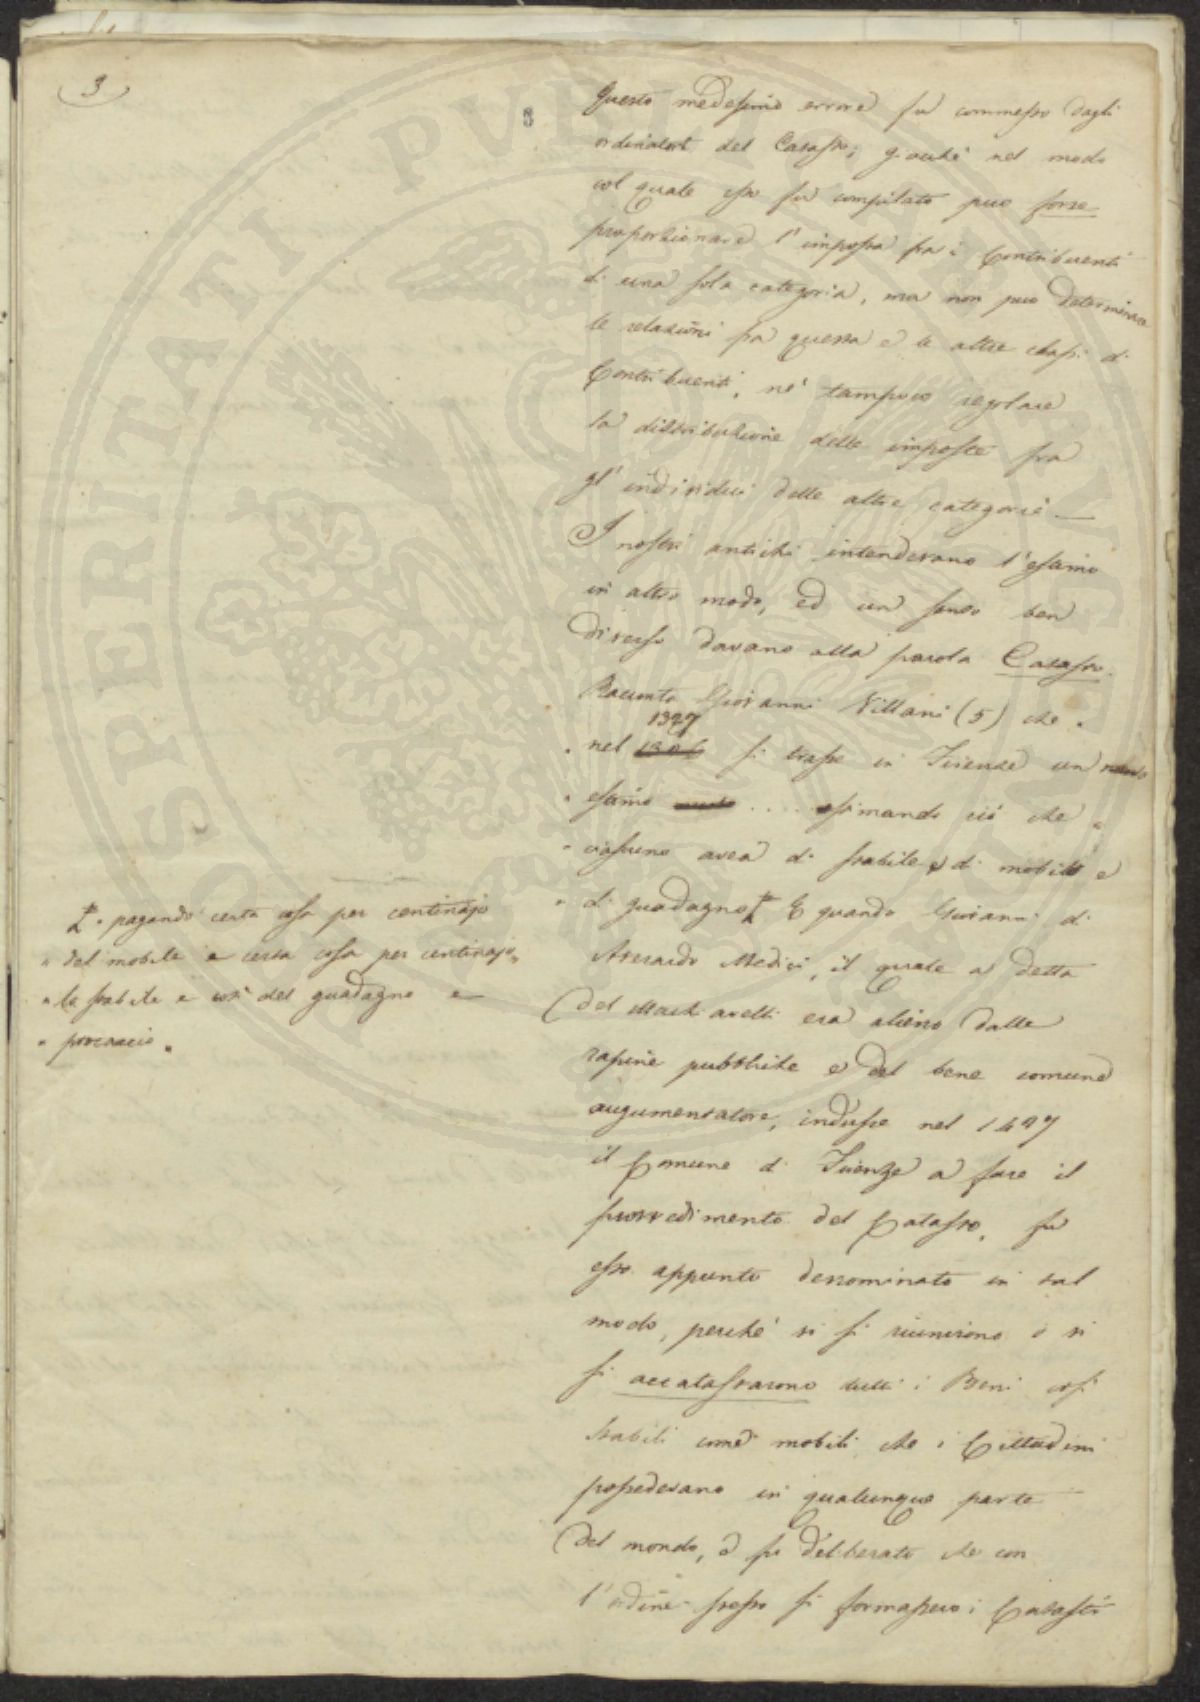 3
3
Questo medesimo errore fu commesso dagli
ordinatori del Catasto; giacchè nel modo
col quale esso fu compilato può forse
proporzionare l'imposta fra i Contribuenti
di una sola categoria, ma non può determinare
le relazioni fra questa e le altre classi di
Contribuenti, nè tampoco regolare
la distribuzione delle imposte fra
gl'individui delle altre categorie —
I nostri antichi intendevano l'estimo
in altro modo, ed un senso ben
diverso davano alla parola Catasto.
Racconta Giovanni Villani (5) che "
1327
" nel 1306 si trasse in Firenze un nuovo
" estimo .... estimando ciò che "
" ciascuno avea di stabile e di mobile e
" di guadagno E quando Giovanni di
Averardo Medici, il quale a detta
del Machiavelli era alieno dalle
rapine pubbliche e del bene comune
augumentatore, indusse nel 1427
il Comune di Firenze a fare il
provvedimento del Catasto, fu
esso appunto denominato in tal
modo, perchè vi si riunirono o vi
si accatastarono tutti i Beni così
stabili come mobili che i Cittadini
possedevano in qualunque parte
del mondo, e fu deliberato che con
l'ordine stesso si formassero i Catasti
" pagando certa cosa per centinajo
" del mobile e certa cosa per centinajo "
" lo stabile e così del guadagno e
" procaccio "
PROSPERITATI PVBLICAE